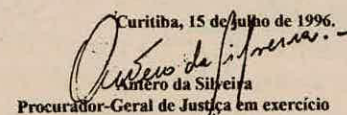 Curitiba, 15 de julho de 1996.
Antero da Silveira
Antero da Silveira
Procurador-Geral de Justiça em exercício